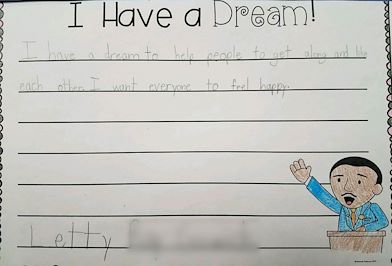 I Have a Dream!
I have a dream to help people to get along and like
each other. I want everyone to feel happy.
Letty